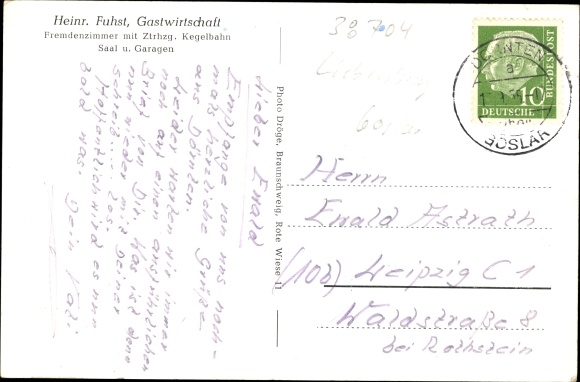 Heinr. Fuhst, Gastwirtschaft
Fremdenzimmer mit Ztrhzg. Kegelbahn
Saal u. Garagen
38704
Liebenburg
DEUTSCHE
BUNDESPOST
10
GOSLAR
Photo Dröge, Braunschweig, Rote Wiese 11
Lieber Ewald
Empfange von uns noch-
mals herzliche Grüße
aus Dörnten.
Leider warten wir immer
noch auf einen ausführlichen
Brief von Dir. Was ist denn
nur wieder mit Deiner
Schreiberei los.
Hoffentlich wird es nun
bald was. Dein Vati
Herrn
Ewald Astrath
(10b) Leipzig C 1
Waldstraße 8
bei Rothstein